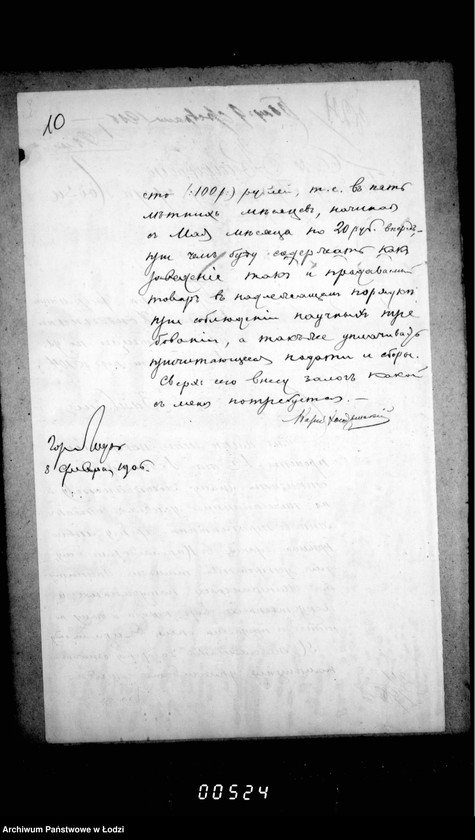 10
сто (:100 р:) рублей, т.е. въ пять
лѣтнихъ мѣсяцевъ, начиная
съ Мая мѣсяца по 20 руб. впередъ-
при чемъ буду содержать какъ
заведеніе такъ и продаваемый
товаръ въ надлежащемъ порядкѣ
при соблюденіи научныхъ тре
бованій, а также уплачивать
причитающіеся подати и сборы.
Сверхъ сего внесу залогъ какой
съ меня потребуется. —
Гор. Лодзь
8 февраля 1906.
00524
Archiwum Państwowe w Łodzi